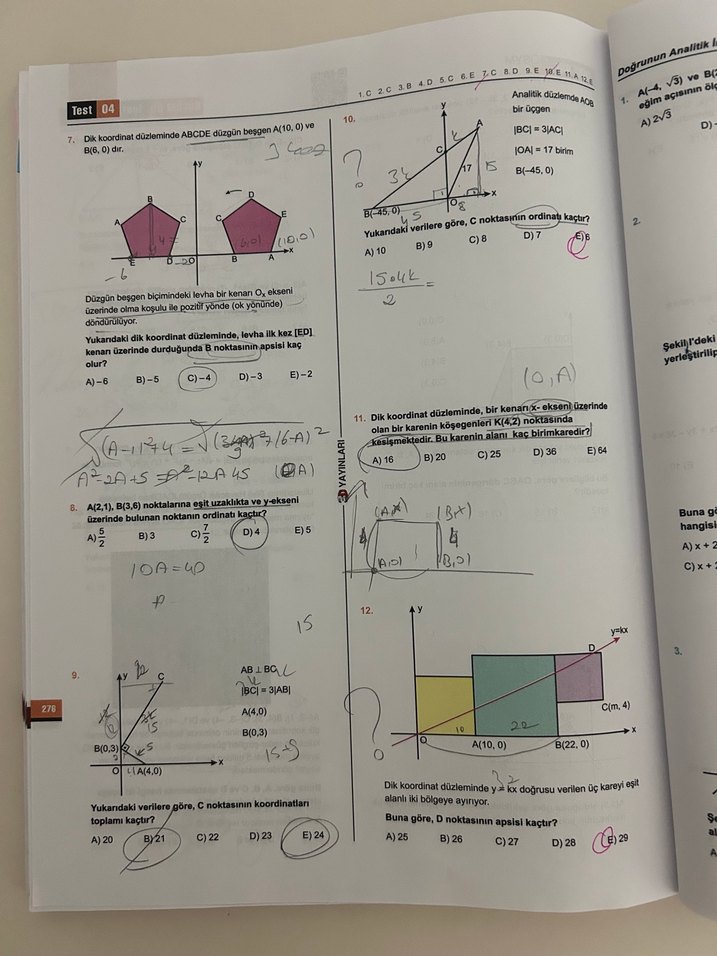 1. C 2. C 3. B 4. D 5. C 6. E 7. C 8. D 9. E 10. E 11. A 12. E
Test 04
7. Dik koordinat düzleminde ABCDE düzgün beşgen A(10, 0) ve
B(6, 0) dır.
y
B
A
C
E
D
O
D
C
E
B
A
x
6,0)
(10,0)
-6
-2
Düzgün beşgen biçimindeki levha bir kenarı Ox ekseni
üzerinde olma koşulu ile pozitif yönde (ok yönünde)
döndürülüyor.
Yukarıdaki dik koordinat düzleminde, levha ilk kez [ED]
kenarı üzerinde durduğunda B noktasının apsisi kaç
olur?
A) –6 B) –5 C) –4 D) –3 E) –2
A²-2A+5 = A²-12A 45
8. A(2,1), B(3,6) noktalarına eşit uzaklıkta ve y-ekseni
üzerinde bulunan noktanın ordinatı kaçtır?
A) 5/2 B) 3 C) 7/2 D) 4 E) 5
10A=40
15
9.
y
C
AB ⊥ BC
|BC| = 3|AB|
A(4,0)
B(0,3)
15+9
B(0,3)
15
5
O
A(4,0)
x
Yukarıdaki verilere göre, C noktasının koordinatları
toplamı kaçtır?
A) 20 B) 21 C) 22 D) 23 E) 24
276
10.
Analitik düzlemde AOB
bir üçgen
|BC| = 3|AC|
|OA| = 17 birim
B(-45, 0)
y
A
C
k
3k
17
15
B(–45, 0)
O
8
x
45
Yukarıdaki verilere göre, C noktasının ordinatı kaçtır?
A) 10 B) 9 C) 8 D) 7 E) 6
15.4k
2
=
(0,A)
11. Dik koordinat düzleminde, bir kenarı x- ekseni üzerinde
olan bir karenin köşegenleri K(4,2) noktasında
kesişmektedir. Bu karenin alanı kaç birimkaredir?
A) 16 B) 20 C) 25 D) 36 E) 64
(A,0)
(B,0)
YAYINLARI
12.
y
y=kx
D
C(m, 4)
10
22
O
A(10, 0)
B(22, 0)
x
32
Dik koordinat düzleminde y = kx doğrusu verilen üç kareyi eşit
alanlı iki bölgeye ayırıyor.
Buna göre, D noktasının apsisi kaçtır?
A) 25 B) 26 C) 27 D) 28 E) 29
Doğrunun Analitik
1. A(–4, √3) ve B(
eğim açısının
A) 2√3
D)
2.
Şekil I'deki
yerleştirilip
Buna
hangisi
A) x + 2
C) x +
3.